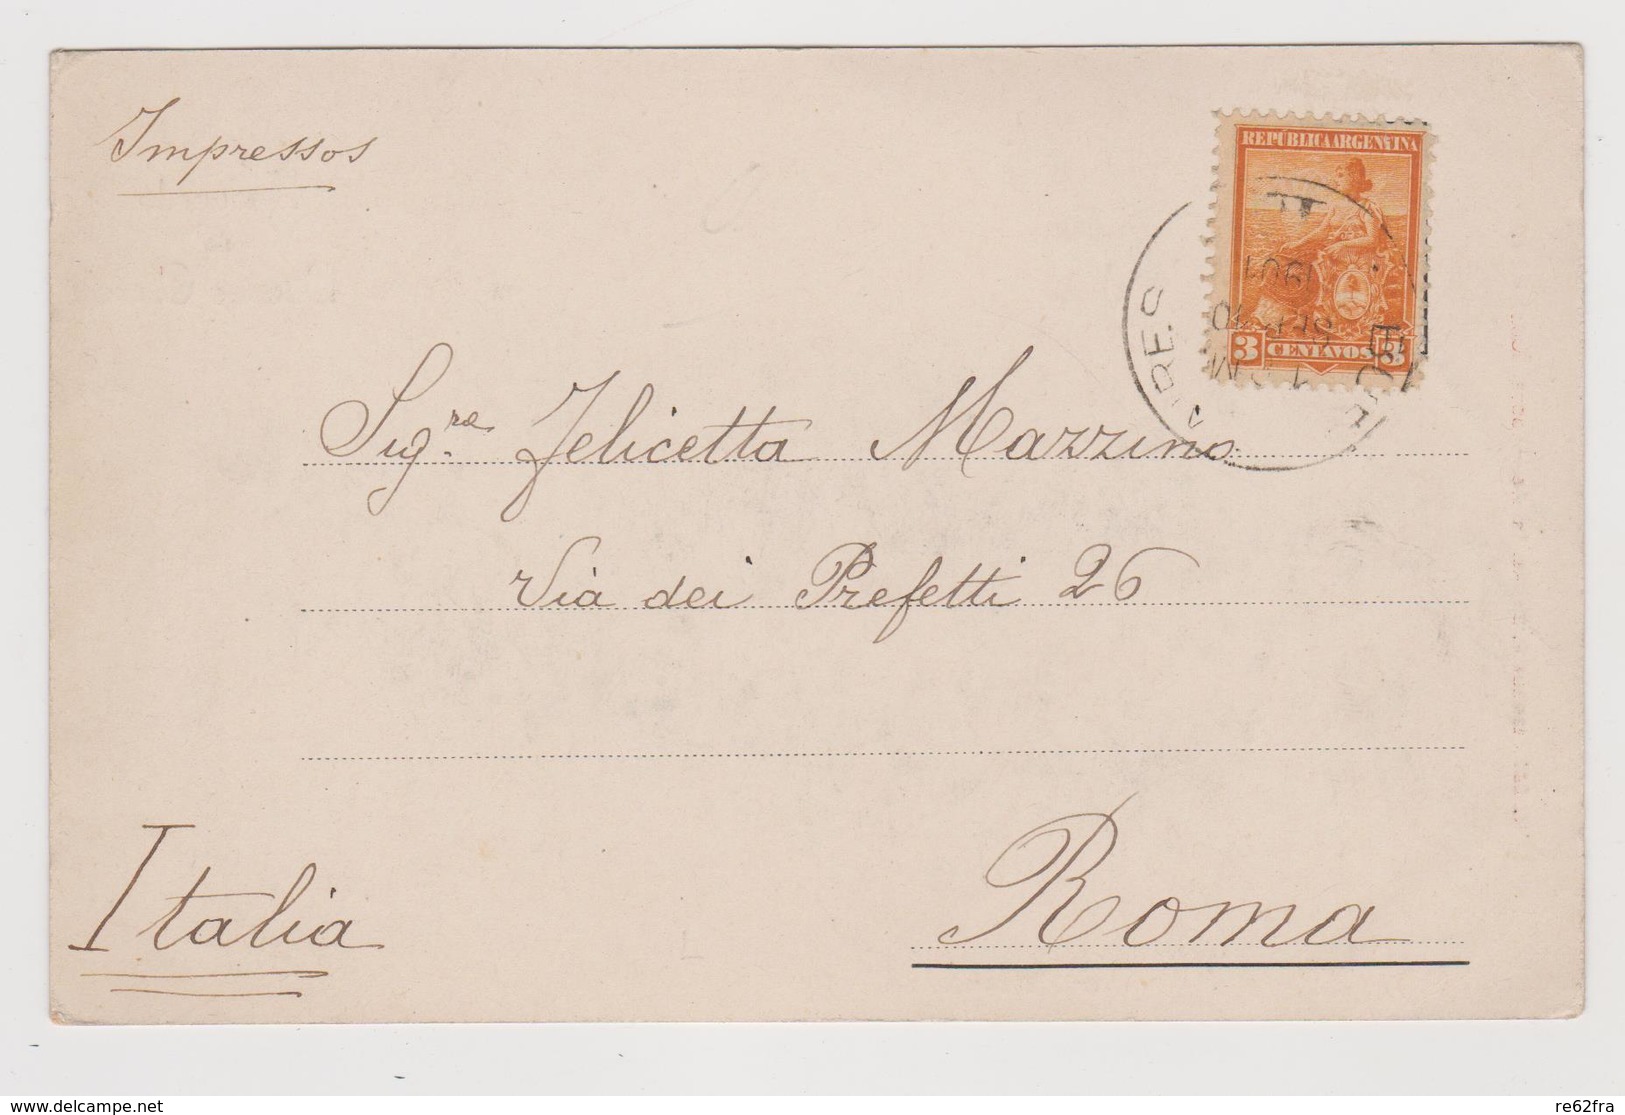 Impressos
REPÚBLICA ARGENTINA
1901
3 CENTAVOS 3
Sig.ra Felicetta Mazzino
Via dei Prefetti 26
Italia
Roma
www.delcampe.net
re62fra